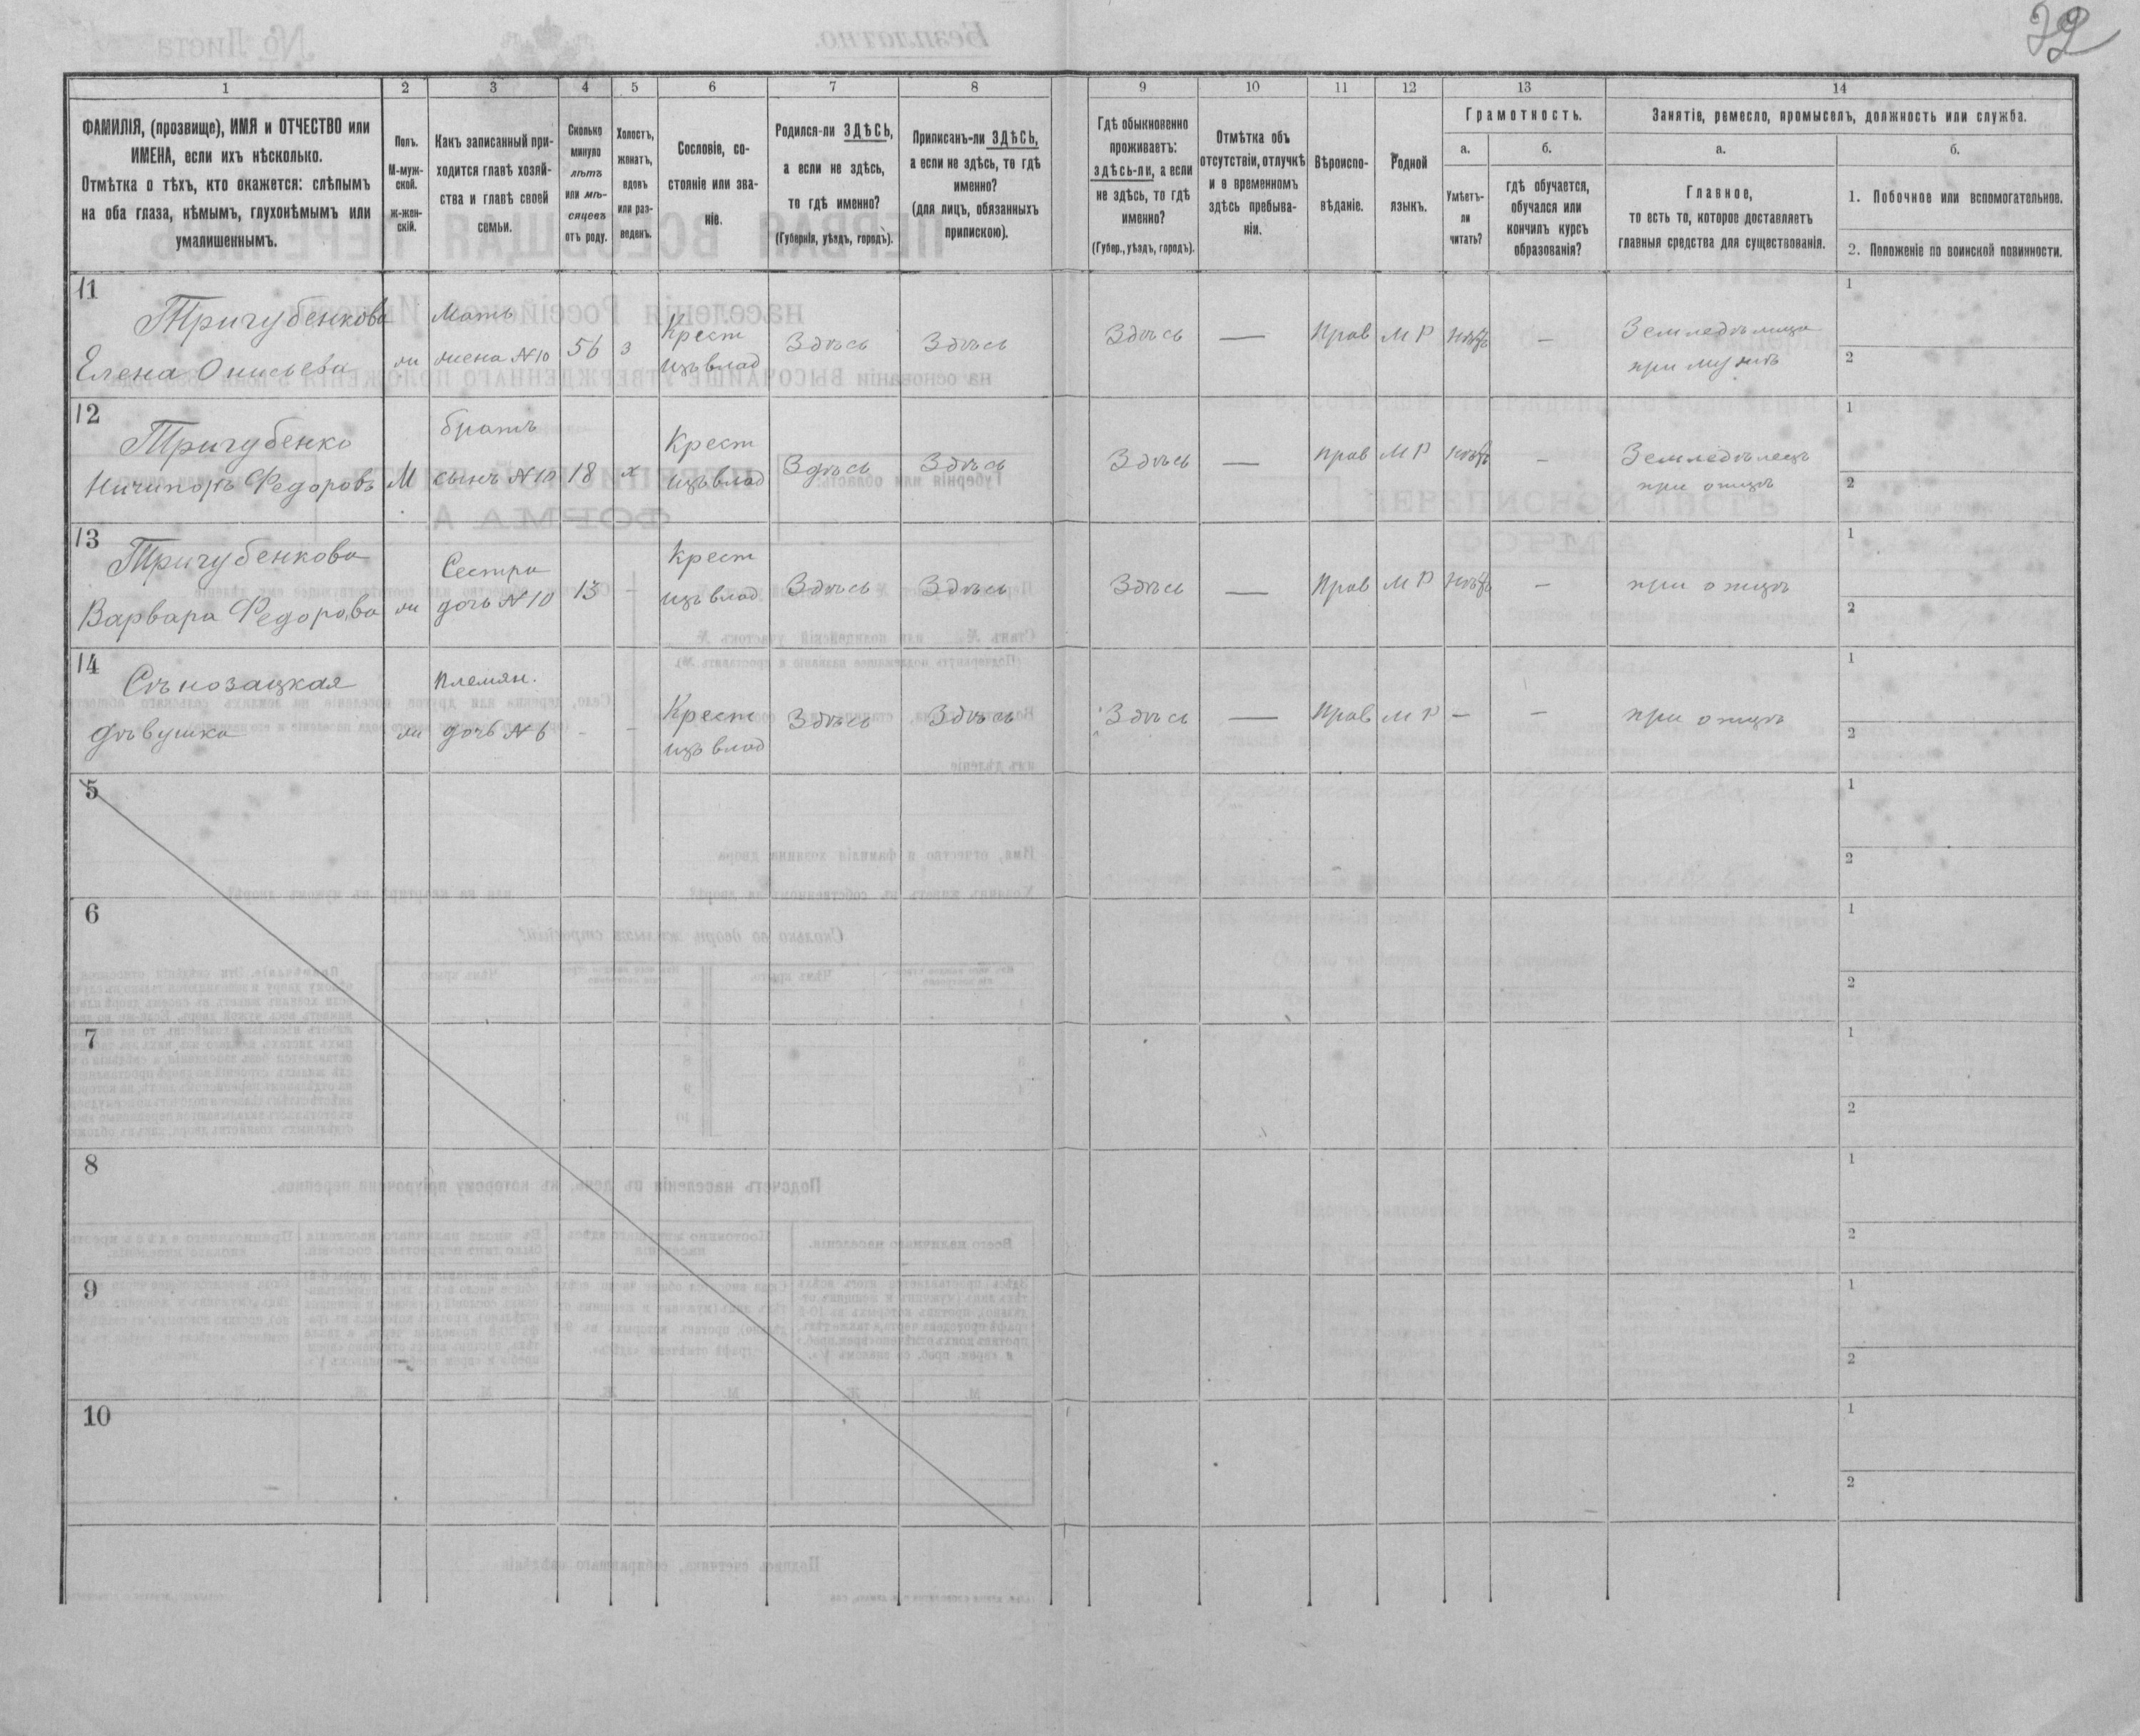 32
1 2 3 4 5 6 7 8 9 10 11 12 13 14
ФАМИЛІЯ, (прозвище), ИМЯ и ОТЧЕСТВО или
ИМЕНА, если ихъ нѣсколько.
Отмѣтка о тѣхъ, кто окажется: слѣпымъ
на оба глаза, нѣмымъ, глухонѣмымъ или
умалишеннымъ.
Полъ.
М-муж-
ской.
ж-жен-
скій.
Какъ записанный при-
ходится главѣ хозяй-
ства и главѣ своей
семьи.
Сколько
минуло
лѣтъ
или мѣ-
сяцевъ
отъ роду.
Холостъ,
женатъ,
вдовъ
или раз-
веденъ.
Сословіе, со-
стояніе или зва-
ніе.
Родился-ли ЗДѢСЬ,
а если не здѣсь,
то гдѣ именно?
(Губернія, уѣздъ, городъ).
Приписанъ-ли ЗДѢСЬ,
а если не здѣсь, то гдѣ
именно?
(для лицъ, обязанныхъ
припискою).
Гдѣ обыкновенно
проживаетъ:
здѣсь-ли, а если
не здѣсь, то гдѣ
именно?
(Губер., уѣздъ, городъ).
Отмѣтка объ
отсутствіи, отлучкѣ
и о временномъ
здѣсь пребыва-
ніи.
Вѣроиспо-
вѣданіе.
Родной
языкъ.
Грамотность.
а.
Умѣетъ-
ли
читать?
б.
гдѣ обучается,
обучался или
кончилъ курсъ
образованія?
Занятіе, ремесло, промыселъ, должность или служба.
а.
Главное,
то есть то, которое доставляетъ
главныя средства для существованія.
б.
1. Побочное или вспомогательное.
2. Положеніе по воинской повинности.
11
Тригубенкова
Елена Онисьева
ж
Мать
жена №10
56
з
Крест
изъ влад
Здѣсь
Здѣсь
Здѣсь
—
Прав
М Р
нѣтъ
—
Земледѣлица
при мужѣ
1
2
12
Тригубенко
Ничипоръ Федоровъ
М
братъ
сынъ №10
18
х
Крест
изъ влад
Здѣсь
Здѣсь
Здѣсь
—
прав
М Р
нѣтъ
—
Земледѣлецъ
при отцѣ
1
2
13
Тригубенкова
Варвара Федорова
ж
Сестра
дочь №10
13
-
Крест
изъ влад
Здѣсь
Здѣсь
Здѣсь
—
Прав
М Р
нѣтъ
—
при отцѣ
1
2
14
Сѣнозацкая
дѣвушка
ж
племян.
дочь №6
-
-
Крест
изъ влад
Здѣсь
Здѣсь
Здѣсь
—
Прав
М Р
—
—
при отцѣ
1
2
5
1
2
6
1
2
7
1
2
8
1
2
9
1
2
10
1
2